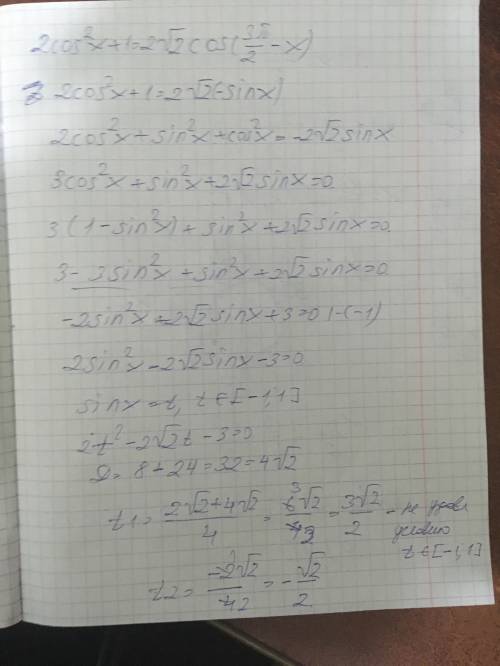 2cos²x+1=2√2cos(3π/2-x)
2cos²x+1=2√2(-sinx)
2cos²x+sin²x+cos²x=-2√2sinx
3cos²x+sin²x+2√2sinx=0
3(1-sin²x)+sin²x+2√2sinx=0
3-3sin²x+sin²x+2√2sinx=0
-2sin²x+2√2sinx+3=0|·(-1)
2sin²x-2√2sinx-3=0
sinx=t, t∈[-1,1]
2t²-2√2t-3=0
D=8+24=32=4√2
t1=(2√2+4√2)/4=6√2/4=3√2/2 - не
условию
t∈[-1,1]
t2=-2√2/4=-√2/2